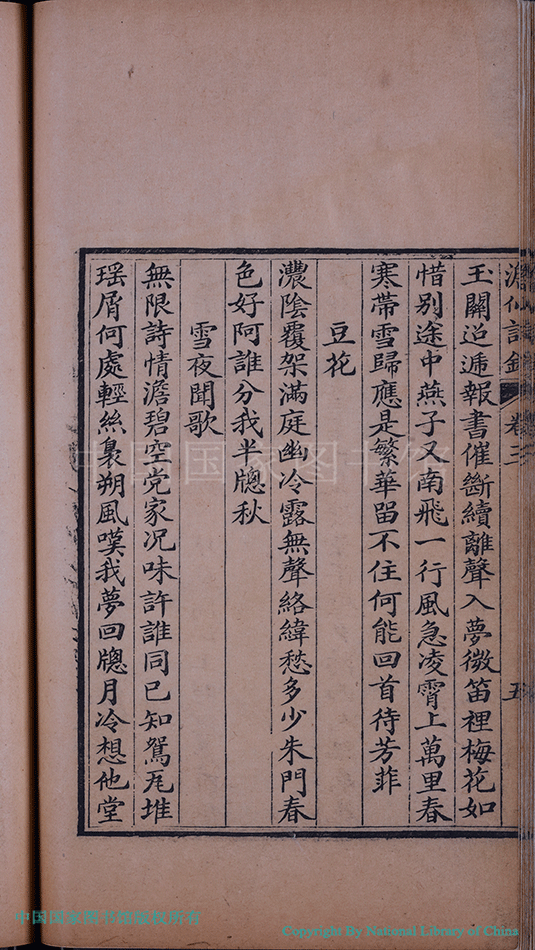 澹仙詩鈔 卷三 五
玉關迢遞報書催斷續離聲入夢微笛裡梅花如
惜别途中燕子又南飛一行風急凌霄上萬里春
寒帶雪歸應是繁華留不住何能回首待芳菲
豆花
濃陰覆架滿庭幽冷露無聲絡緯愁多少朱門春
色好阿誰分我半牎秋
雪夜聞歌
無限詩情澹碧空党家况味許誰同已知鴛瓦堆
瑶屑何處輕絲裊朔風嘆我夢回牎月冷想他堂
中国国家图书馆
中国国家图书馆版权所有
Copyright By National Library of China